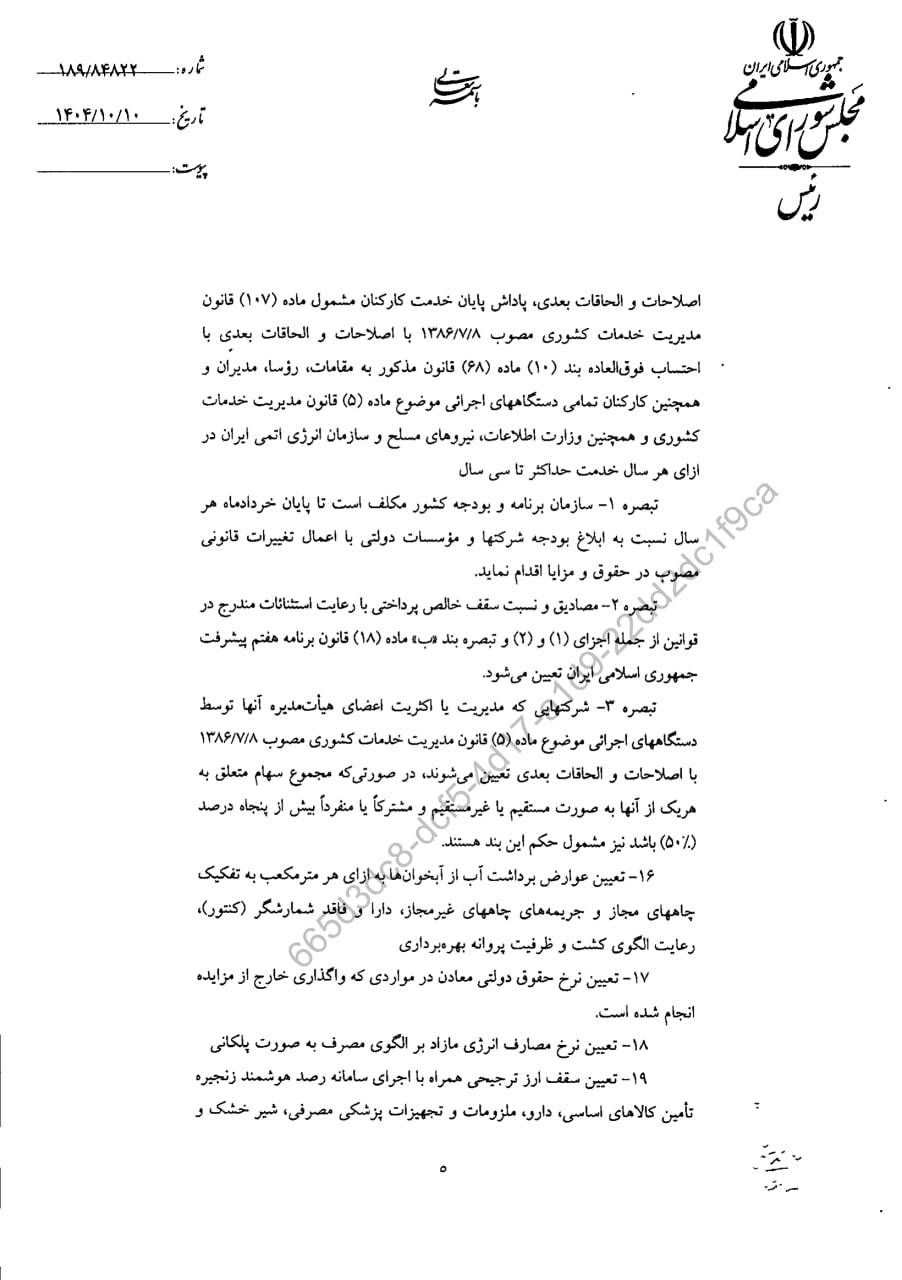 جمهوری اسلامی ایران
مجلس شورای اسلامی
رئیس
باسمه تعالی
شماره: ۱۸۹/۸۴۸۲۲
تاریخ: ۱۴۰۴/۱۰/۱۰
پیوست:
اصلاحات و الحاقات بعدی، پاداش پایان خدمت کارکنان مشمول ماده (۱۰۷) قانون
مدیریت خدمات کشوری مصوب ۱۳۸۶/۷/۸ با اصلاحات و الحاقات بعدی با
احتساب فوق‌العاده بند (۱۰) ماده (۶۸) قانون مذکور به مقامات، رؤسا، مدیران و
همچنین کارکنان تمامی دستگاههای اجرائی موضوع ماده (۵) قانون مدیریت خدمات
کشوری و همچنین وزارت اطلاعات، نیروهای مسلح و سازمان انرژی اتمی ایران در
ازای هر سال خدمت حداکثر تا سی سال
تبصره ۱- سازمان برنامه و بودجه کشور مکلف است تا پایان خردادماه هر
سال نسبت به ابلاغ بودجه شرکتها و مؤسسات دولتی با اعمال تغییرات قانونی
مصوب در حقوق و مزایا اقدام نماید.
تبصره ۲- مصادیق و نسبت سقف خالص پرداختی با رعایت استثنائات مندرج در
قوانین از جمله اجزای (۱) و (۲) و تبصره بند «ب» ماده (۱۸) قانون برنامه هفتم پیشرفت
جمهوری اسلامی ایران تعیین می‌شود.
تبصره ۳- شرکتهایی که مدیریت یا اکثریت اعضای هیأت‌مدیره آنها توسط
دستگاههای اجرائی موضوع ماده (۵) قانون مدیریت خدمات کشوری مصوب ۱۳۸۶/۷/۸
با اصلاحات و الحاقات بعدی تعیین می‌شوند، در صورتی‌که مجموع سهام متعلق به
هریک از آنها به صورت مستقیم یا غیرمستقیم و مشترکاً یا منفرداً بیش از پنجاه درصد
(۵۰٪) باشد نیز مشمول حکم این بند هستند.
۱۶- تعیین عوارض برداشت آب از آبخوان‌ها به ازای هر مترمکعب به تفکیک
چاههای مجاز و جریمه‌های چاههای غیرمجاز، دارا و فاقد شمارشگر (کنتور)،
رعایت الگوی کشت و ظرفیت پروانه بهره‌برداری
۱۷- تعیین نرخ حقوق دولتی معادن در مواردی که واگذاری خارج از مزایده
انجام شده است.
۱۸- تعیین نرخ مصارف انرژی مازاد بر الگوی مصرف به صورت پلکانی
۱۹- تعیین سقف ارز ترجیحی همراه با اجرای سامانه رصد هوشمند زنجیره
تأمین کالاهای اساسی، دارو، ملزومات و تجهیزات پزشکی مصرفی، شیر خشک و
۵